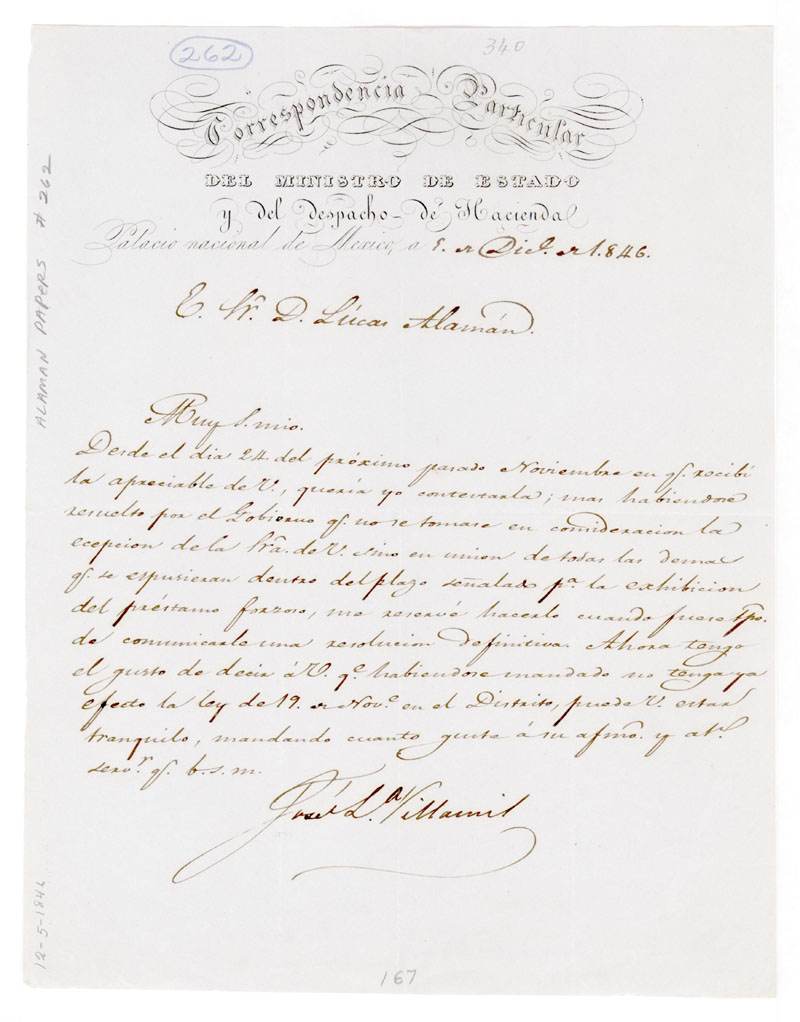 262
340
Correspondencia Particular
DEL MINISTRO DE ESTADO
y del despacho de Hacienda
Palacio nacional de Mexico, a 5. de Dice. de 1.846.
E. Sr. D. Lúcas Alamán.
Muy S. mio.
Desde el dia 24. del próximo pasado Noviembre en qe. recibí
la apreciable de V., queria yo contestarla; mas habiendose
resuelto por el Gobierno qe. no se tomase en consideracion la
ecepcion de la Sra. de V. sino en union de todas las demas
qe. se espusieran dentro del plazo señalado pa. la exhibicion
del préstamo forzoso, me reservé hacerlo cuando fuere tpo.
de comunicarle una resolucion definitiva. Ahora tengo
el gusto de decir á V. qe. habiendose mandado no tenga ya
efecto la ley de 19. de Nove. en el Distrito, puede V. estar
tranquilo, mandando cuanto guste á su afmo. y ato.
servr. q. b. s. m.
José La. Villamil
167
ALAMAN PAPERS # 262
12-5-1846